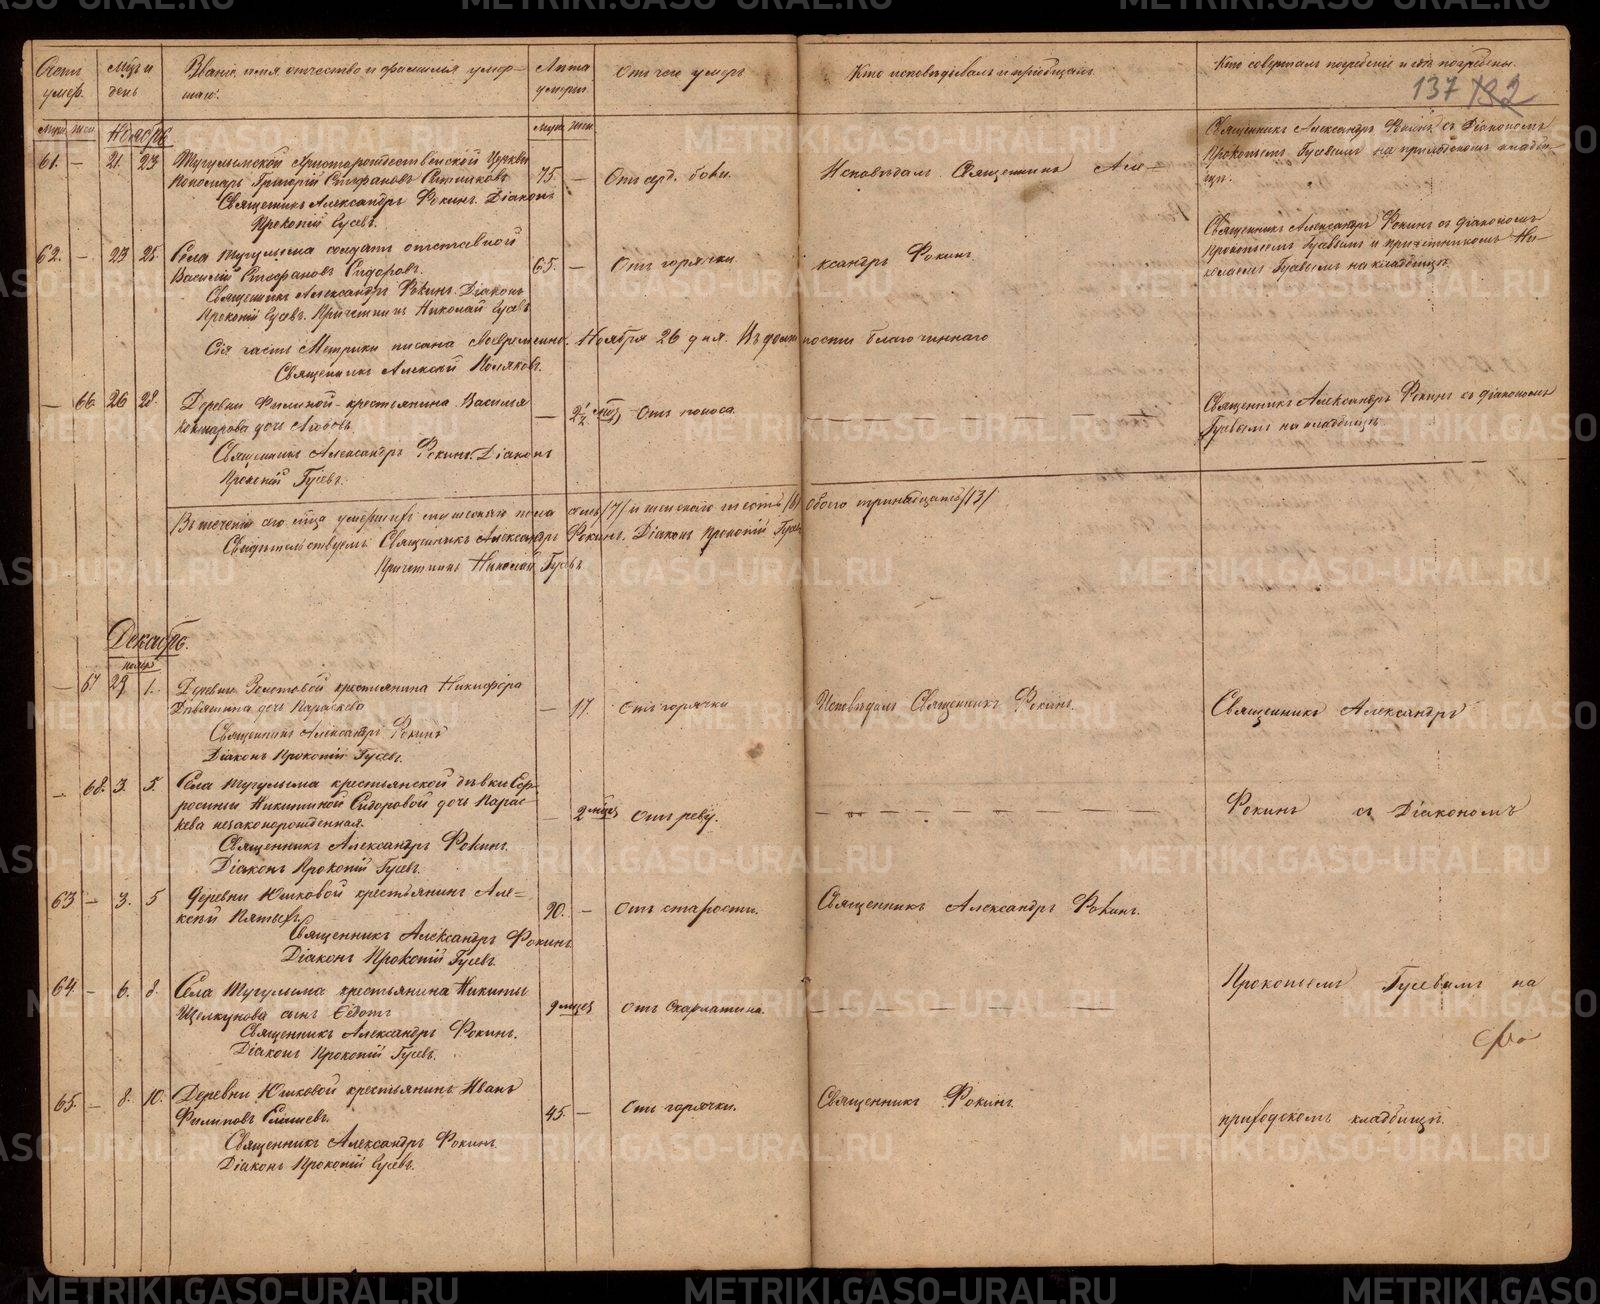 Счетъ умер.
Мцъ и день
Званіе, имя, отчество и фамилія умер-
шаг.
Лѣта умерш.
Отъ чего умеръ
Кто исповѣдывалъ и пріобщалъ.
Кто совершалъ погребеніе и гдѣ погребены.
137
182
муж. жен.
Ноябрь
муж. жен.
61. — 21. 23
Тугулымской Христорождественской Церкви
Пономарь Григорій Стефановъ
Священникъ Александръ Фокинъ. Діаконъ
Прокопій Гусевъ.
75. —
Отъ серд. боли.
Исповѣдалъ Священникъ Але-
Священникъ Александръ Фокинъ съ Діакономъ
Прокопьемъ Гусевымъ на приходскомъ кладби-
щѣ.
62. — 23 25.
Села Тугулыма солдатъ отставной
Василій Стефановъ Сидоровъ.
Священникъ Александръ Фокинъ. Діаконъ
Прокопій Гусевъ. Причетникъ Николай Гусевъ
65. —
Отъ горячки
ксандръ Фокинъ.
Священникъ Александръ Фокинъ съ діакономъ
Прокопьемъ Гусевымъ и причетникомъ Ни-
колаемъ Гусевымъ на кладбищѣ.
Сія часть Метрики писана своевременно. Ноября 26 дня. Въ должности благочиннаго
Священникъ Алексѣй Поляковъ.
— 66. 26 28.
Деревни Филиной крестьянина Василья
дочь Любовь.
Священникъ Александръ Фокинъ. Діаконъ
Прокопій Гусевъ.
— 2 1/2 мцъ
Отъ поноса.
Священникъ Александръ Фокинъ съ діакономъ
Гусевымъ на кладбищѣ
Въ теченіи сего мца умершихъ мужескаго пола семь /7/ и женскаго шесть /6/ обоего тринадцать /13/
Свидѣтельствуемъ: Священникъ Александръ Фокинъ. Діаконъ Прокопій Гусевъ
Причетникъ Николай Гусевъ.
Декабрь.
ноябр
— 67 29 1.
Деревни Золотовой крестьянина Никифора
дочь Параскева
Священникъ Александръ Фокинъ
Діаконъ Прокопій Гусевъ.
— 17.
Отъ горячки
Исповѣдалъ Священникъ Фокинъ.
Священникъ Александръ
— 68. 3. 5.
Села Тугулыма крестьянской дѣвки Еф-
росиньи Никитиной Сидоровой дочь Парас-
кева незаконорожденная.
Священникъ Александръ Фокинъ.
Діаконъ Прокопій Гусевъ.
— 2 мцъ
Отъ реву.
Фокинъ съ Діакономъ
63 — 3. 5
Деревни Юшковой крестьянинъ Але-
ксѣй Пятыхъ
Священникъ Александръ Фокинъ
Діаконъ Прокопій Гусевъ.
90. —
Отъ старости.
Священникъ Александръ Фокинъ.
64. — 6. 8.
Села Тугулыма крестьянина Никиты
Щелкунова сынъ Ѳедотъ
Священникъ Александръ Фокинъ.
Діаконъ Прокопій Гусевъ.
9 мцев
Отъ Скарлатина.
Прокопьемъ Гусевымъ на
65. — 8. 10.
Деревни Юшковой крестьянинъ Иванъ
Филиповъ
Священникъ Александръ Фокинъ.
Діаконъ Прокопій Гусевъ.
45. —
Отъ горячки.
Священникъ Фокинъ.
приходскомъ кладбищѣ.
METRIKI.GASO-URAL.RU